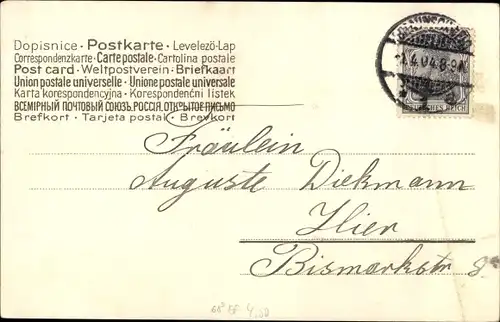 Dopisnice - Postkarte - Levelező-Lap
Correspondenzkarte - Carte postale - Cartolina postale
Post card - Weltpostverein - Briefkaart
Union postale universelle - Unione postale universale
Karta korespondencyjna - Korespondenční listek
ВСЕМІРНЫЙ ПОЧТОВЫЙ СОЮЗЪ. РОССІЯ. ОТКРЫТОЕ ПИСЬМО
Brefkort - Tarjeta postal - Brevkort
4.04.8-9
DEUTSCHES REICH
Fräulein
Auguste Diekmann
Hier
Bismarkstr